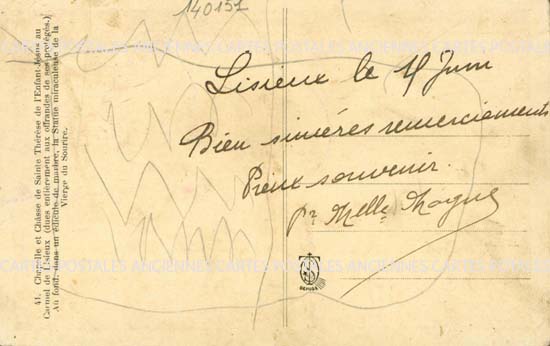 140151
41. Chapelle et Châsse de Sainte Thérèse de l'Enfant-Jésus au
Carmel de Lisieux (dues entièrement aux offrandes de ses protégés.)
Au fond, dans un édicule de marbre, la Statue miraculeuse de la
Vierge du Sourire.
Lisieux le 4 Juin
Bien sincères remerciements
Pieux souvenir.
pr Melle
CARTES POSTALES ANCIENNES CARTES POSTALES ANCIENNES